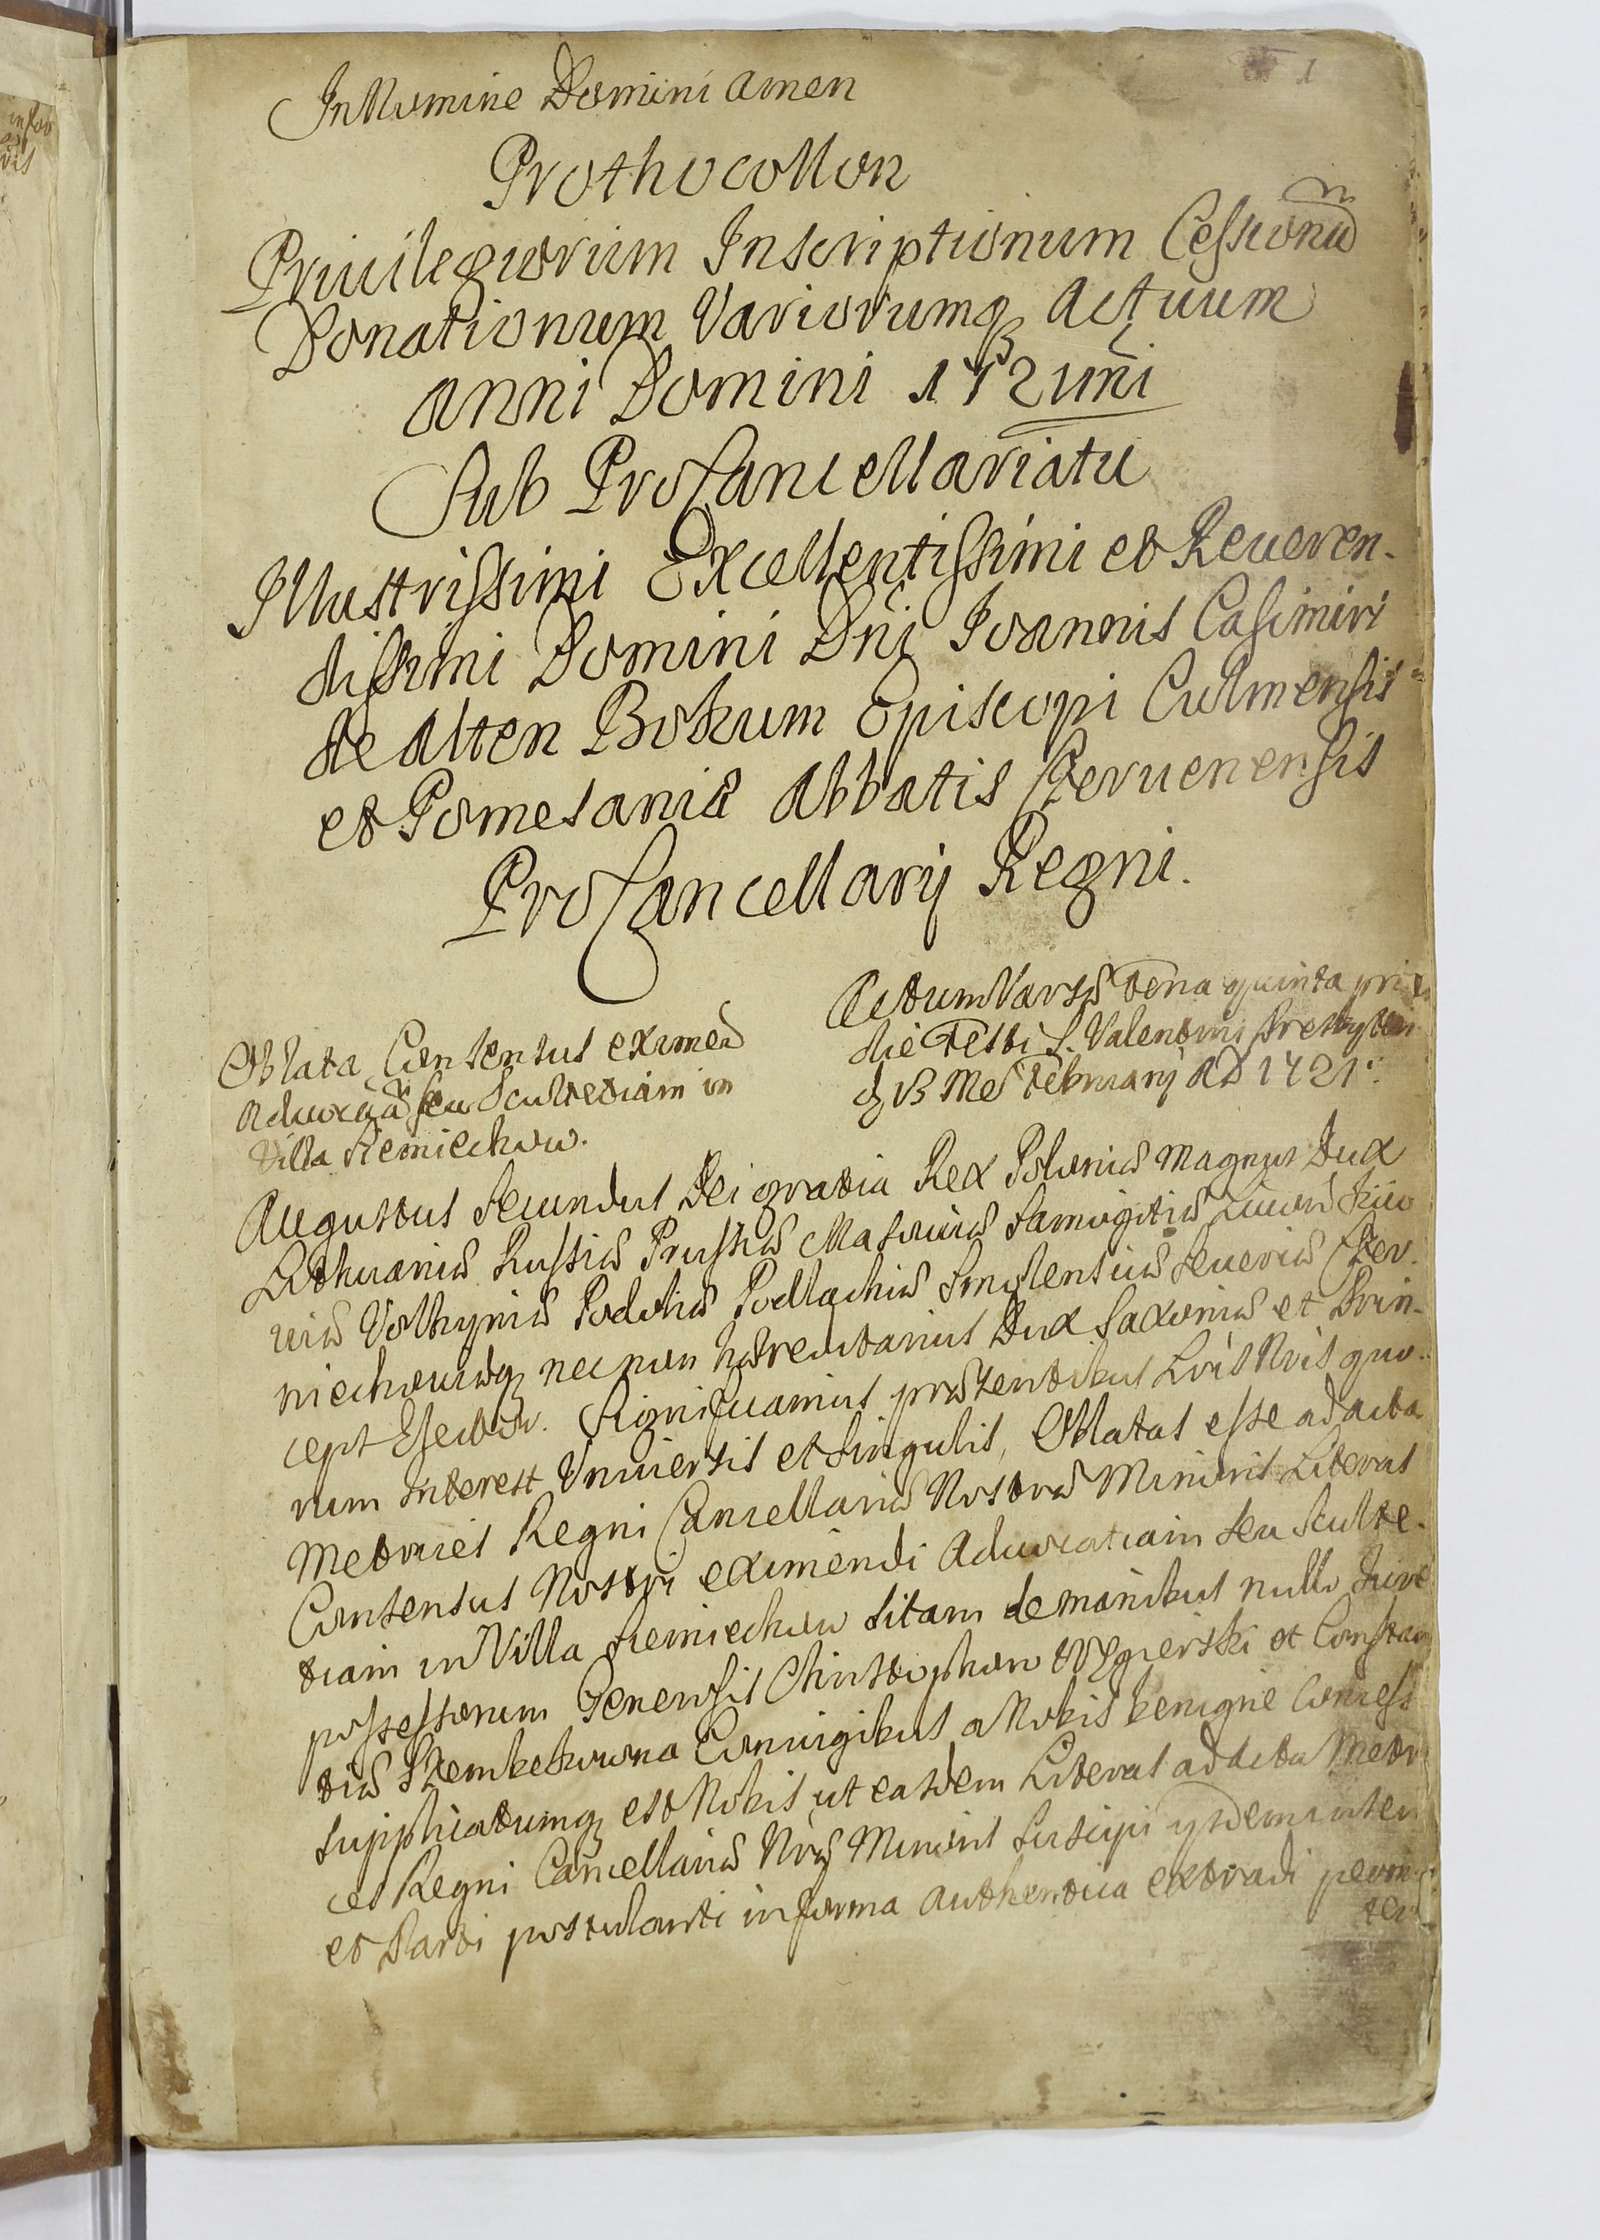 1
In Nomine Domini Amen
Prothocollon
Priuilegiorum Inscriptionum Cessionū
Donationum Variorumq Actuum
Anni Domini 1721mi
Sub ProCancellariatu
Illustrissimi Excellentissimi et Reueren-
dissimi Domini Dni Ioannis Casimiri
de Alten Bokum Episcopi Culmensis
et Pomesaniæ Abbatis Czeruenensis
ProCancellarij Regni.
Actum Varsæ Feria quinta pri
die Festi S. Valentini Presbyteri
d 13 Me Februarij AD 1721
Oblata Consensus eximen
Aduocatiā seu Scultetiam in
Villa Siemiechow.
Augustus Secundus Dei gratia Rex Poloniæ Magnus Dux
Lithuaniæ Russiæ Prussiæ Masouiæ Samogitiæ Kijo
uiæ Volhyniæ Podoliæ Podlachiæ Smolensciæ Seueriæ Czer-
niechouiæq necnon hæreditarius Dux Saxoniæ et Prin-
ceps Elector. Significamus præsentibus Lris Nris quo-
rum interest Vniuersis et singulis, Oblatas esse ad acta
Metrices Regni Cancellariæ Nostræ Minoris Literas
Consensus Nostri eximendi Aduocatiam seu Sculte-
tiam in Villa Siemiechow sitam de manibus nullo Iure
possessorum Generosis Christophoro Węgierski et Constan
tiæ Szembekowna Coniugibus a Nobis benigne Concess
supplicatumq est Nobis ut easdem Literas ad acta Metri
ces Regni Cancellariæ Nræ Minoris suscipi
et Parti postulanti in forma authentica extradi